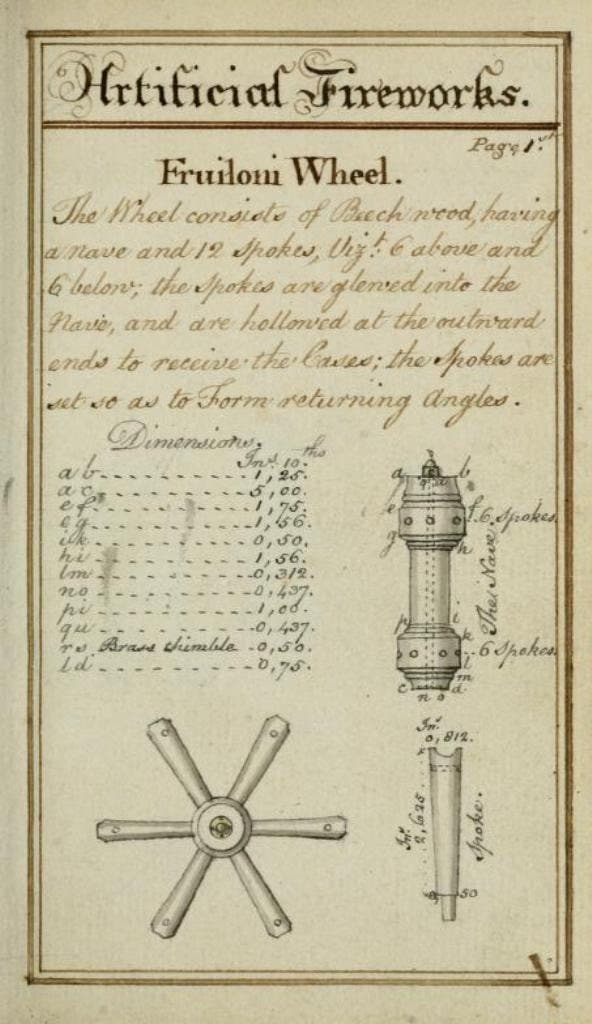 Artificial Fireworks.
Page 1.st
Fruiloni Wheel.
The Wheel consists of Beech wood, having
a nave and 12 Spokes, Vizt. 6 above and
6 below; the Spokes are glewed into the
Nave, and are hollowed at the outward
ends to receive the Cases; the Spokes are
set so as to Form returning Angles.
Dimensions.
Ins. 10ths
ab - - - - - - 1,25.
ac - - - - - - 5,00.
ef - - - - - - 1,75.
eg - - - - - - 1,56.
ik - - - - - - 0,50.
hi - - - - - - 1,56.
lm - - - - - - 0,312.
no - - - - - - 0,437.
pi - - - - - - 1,00.
qu - - - - - - 0,437.
rs Brass thimble - 0,50.
ld - - - - - - 0,75.
a b
e f. 6 Spokes.
g h
The Nave
p i
k
l 6 Spokes.
m
c n o d
In.
0,812.
In. 2,625
Spoke.
50